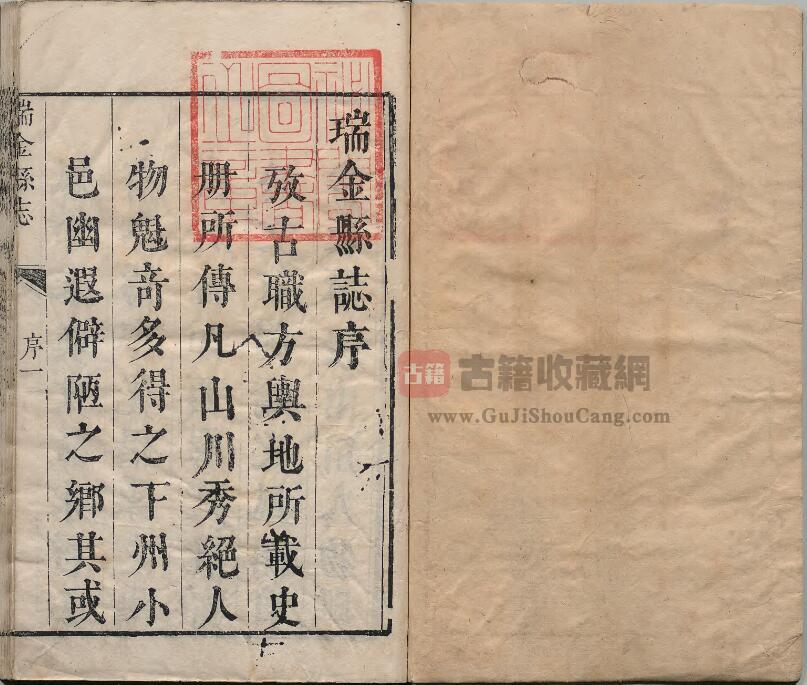 瑞金縣誌序
攷古職方輿地所載史
冊所傳凡山川秀絕人
物魁竒多得之下州小
邑幽遐僻陋之鄉其或
瑞金縣志
序一
古籍
古籍收藏網
www.GuJiShouCang.com